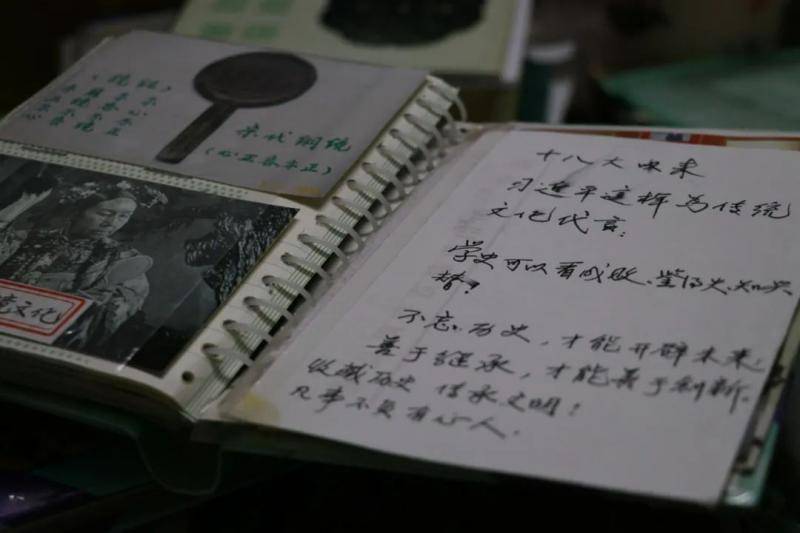 宋代铜镜
(心正容亦正)
文化
十八大以来
习近平这样为传统
文化代言:
学史可以看成败、鉴得失、知兴
替;
不忘历史，才能开辟未来;
善于继承，才能善于创新。
收藏历史 传承文明!
凡事不负有心人.